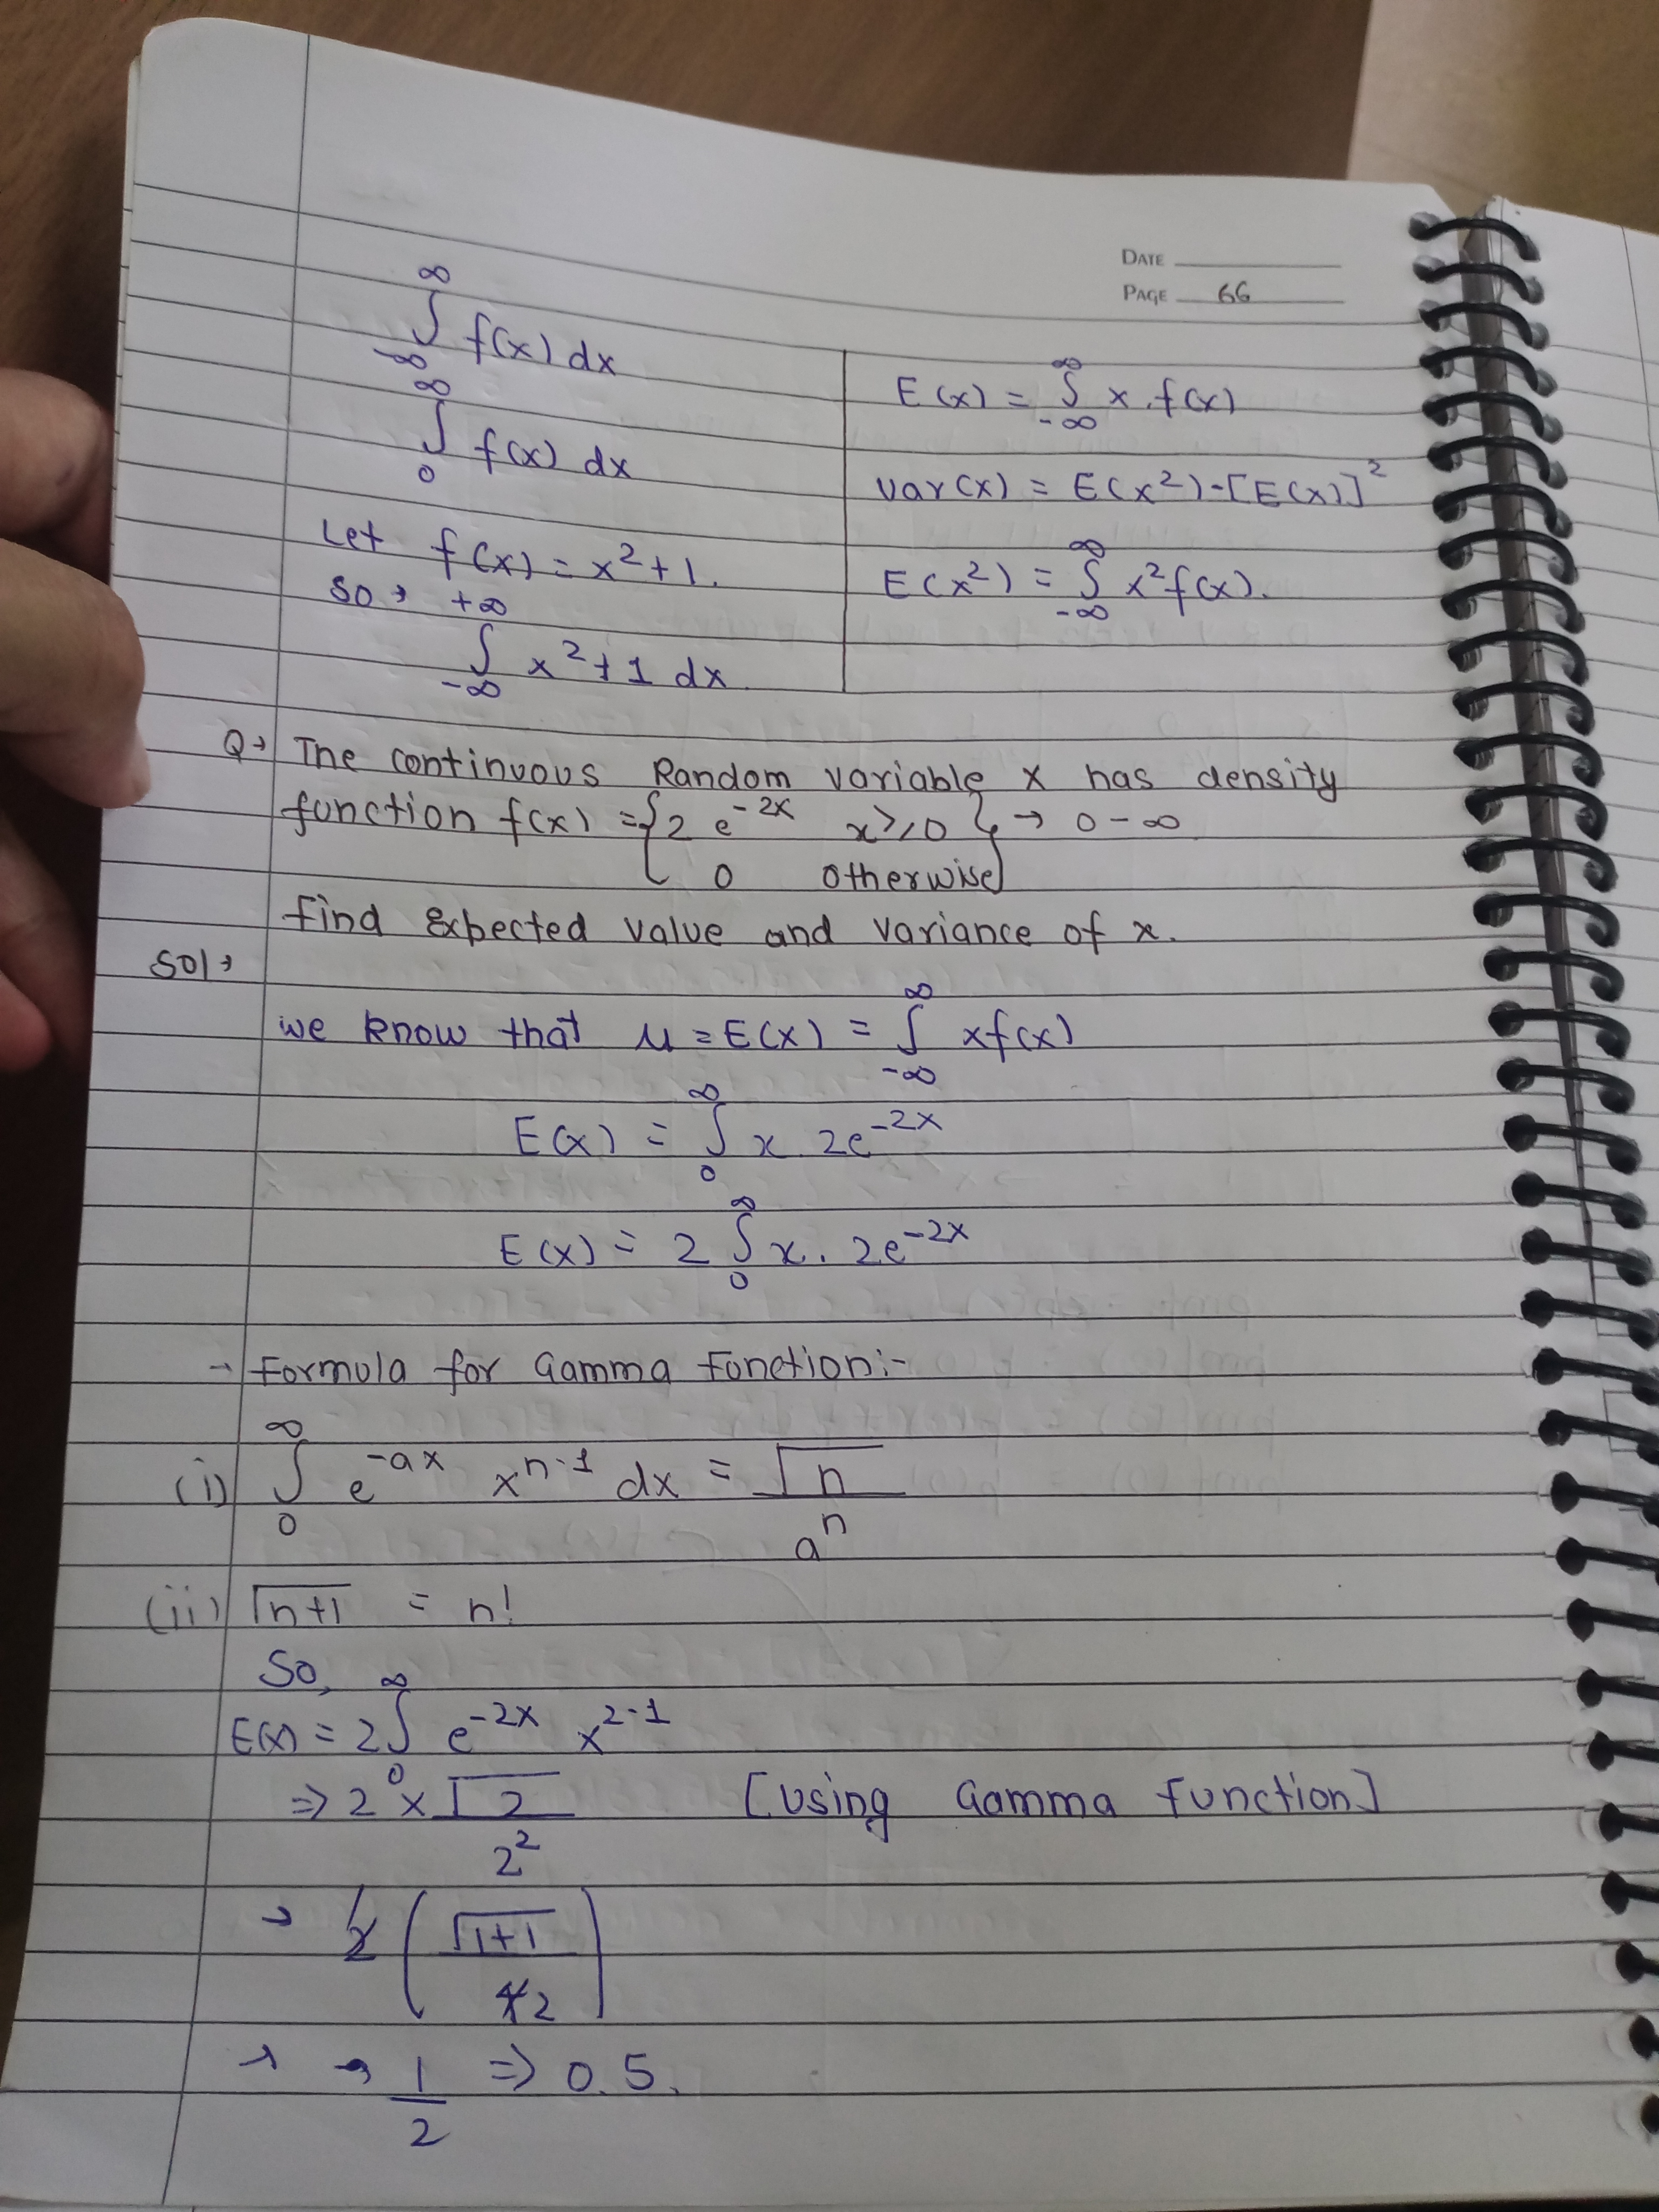 DATE
PAGE 66
∞
∫ f(x) dx
-∞
∞
∫ f(x) dx
0
Let f(x) = x²+1.
so → +∞
∫ x²+1 dx
-∞
E(x) = ∫_{-∞}^{∞} x . f(x)
var(x) = E(x²)-[E(x)]²
E(x²) = ∫_{-∞}^{∞} x² f(x).
Q→ The continuous Random variable x has density
function f(x) = { 2 e^{-2x} x≥0 } → 0 - ∞
0 otherwise
find expected value and variance of x.
Sol→
we know that μ = E(x) = ∫_{-∞}^{∞} xf(x)
E(x) = ∫_{0}^{∞} x 2e^{-2x}
E(x) = 2 ∫_{0}^{∞} x . 2e^{-2x}
→ Formula for Gamma Function:-
(i) ∫_{0}^{∞} e^{-ax} x^{n-1} dx = Γn / a^n
(ii) Γn+1 = n!
So,
E(x) = 2 ∫_{0}^{∞} e^{-2x} x^{2-1}
⇒ 2 × Γ2 / 2² [Using Gamma function]
→ 2 ( Γ1+1 / 4 2 )
→ → 1/2 ⇒ 0.5.